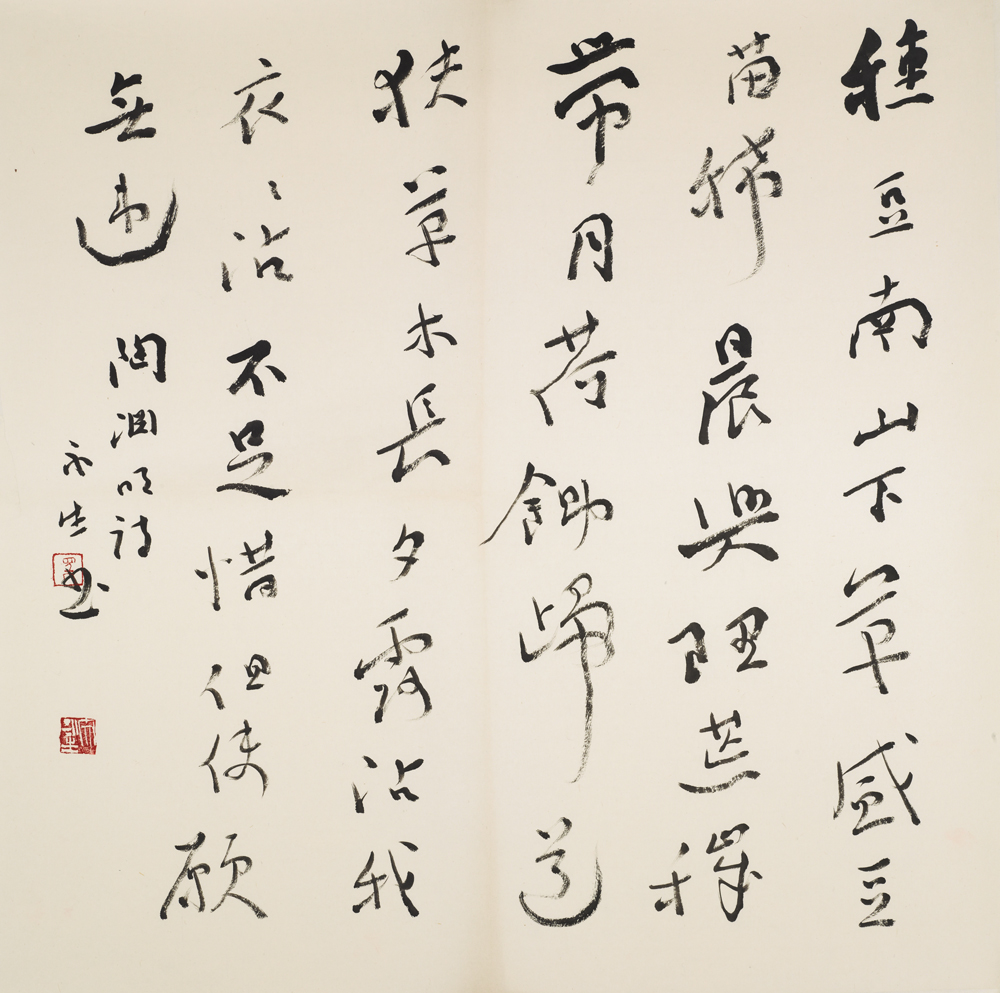 種豆南山下草盛豆
苗稀晨興理荒穢
帶月荷鋤歸道
狹草木長夕露沾我
衣〻沾不足惜但使願
無違
陶淵明詩
生書